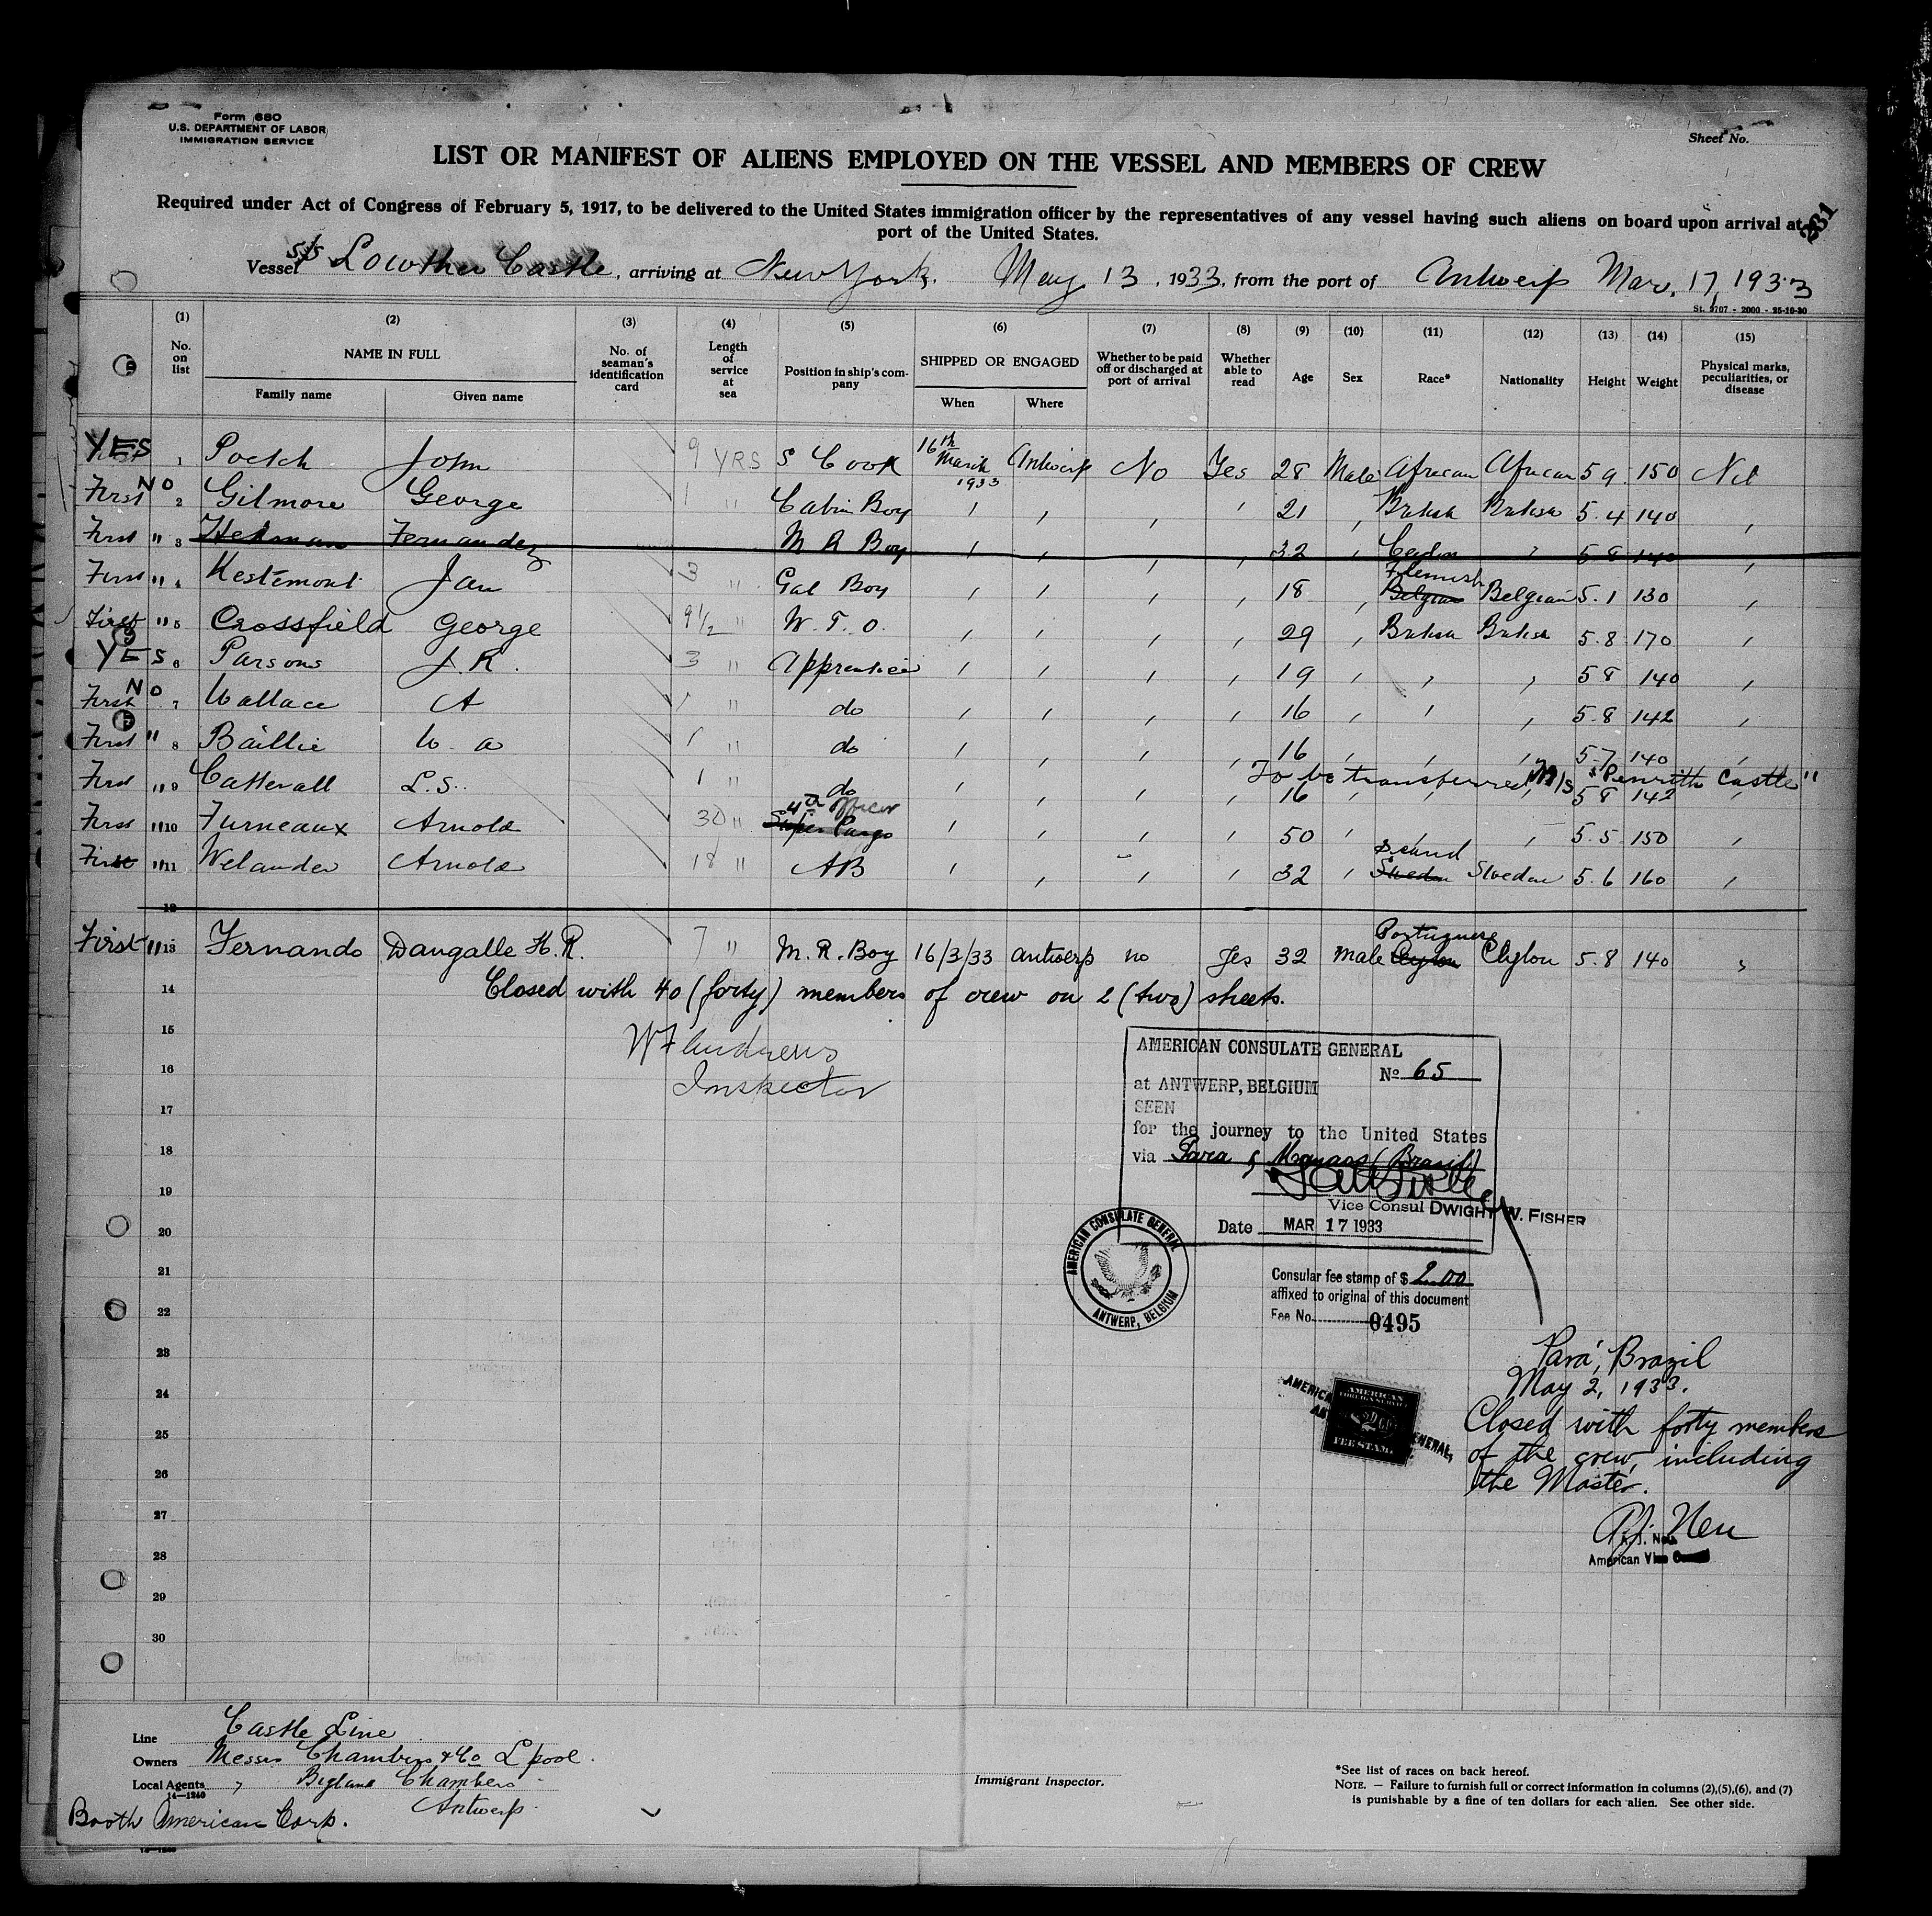 Form 680
U.S. DEPARTMENT OF LABOR
IMMIGRATION SERVICE
Sheet No.
LIST OR MANIFEST OF ALIENS EMPLOYED ON THE VESSEL AND MEMBERS OF CREW
Required under Act of Congress of February 5, 1917, to be delivered to the United States immigration officer by the representatives of any vessel having such aliens on board upon arrival at
port of the United States.
331
Vessel S/S Lowther Castle, arriving at New York. May 13, 1933, from the port of Antwerp Mar. 17, 1933
St. 9707 - 2000 - 25-10-30
(1) (2) (3) (4) (5) (6) (7) (8) (9) (10) (11) (12) (13) (14) (15)
No. on list NAME IN FULL No. of seaman's identification card Length of service at sea Position in ship's company SHIPPED OR ENGAGED Whether to be paid off or discharged at port of arrival Whether able to read Age Sex Race* Nationality Height Weight Physical marks, peculiarities, or disease
Family name Given name When Where
YES 1 John 9 YRS S Cook 16th March 1933 Antwerp No Yes 28 Male African African 5 9 150 Nil
First NO 2 Gilmore George 1 " Cabin Boy 21 British British 5.4 140
First " 3 Herman Fernandez M R Boy 32 Ceylon 5 8 140
First " 4 Kestemont Jan 3 " Gal Boy 18 Flemish Belgian Belgian 5.1 130
First " 5 Crossfield George 9 1/2 " W. T. O. 29 British British 5.8 170
YES 6 Parsons J. R. 3 " Apprentice 19 5 8 140
First NO 7 Wallace A 1 " do 16 5.8 142
First " 8 Baillie W. A 1 " do 16 5.7 140
To be transferred M/S "Penrith Castle"
First " 9 Catterall L.S. 1 " do 16 5 8 142
First " 10 Furneaux Arnold 30 " 4th Officer Super Cargo 50 5.5 150
First " 11 Welander Arnold 18 " AB 32 Scand Sweden Sweden 5.6 160
12
First " 13 Fernando Dangalle H. R. 7 " M. R. Boy 16/3/33 Antwerp no Yes 32 Male Portuguese Ceylon Ceylon 5.8 140
14 Closed with 40 (forty) members of crew on 2 (two) sheets.
15 W F Andrews
16 Inspector
17
18
19
20
21
22
23
24
25
26
27
28
29
30
AMERICAN CONSULATE GENERAL
No 65
at ANTWERP, BELGIUM
SEEN
for the journey to the United States
via Para & Manaos (Brazil)
Vice Consul DWIGHT W. FISHER
Date MAR 17 1933
AMERICAN CONSULATE GENERAL
ANTWERP, BELGIUM
Consular fee stamp of $ 2.00
affixed to original of this document
Fee No. 0495
AMERICAN
FOREIGN SERVICE
FEE STAMP
Pará, Brazil
May 2, 1933.
Closed with forty members
of the crew, including
the Master.
A. J. Neu
American Vice Consul
Line Castle Line
Owners Messrs Chambers & Co L'pool.
Local Agents " Bigland Chambers
14-1240
Antwerp.
Booth American Corp.
Immigrant Inspector.
*See list of races on back hereof.
NOTE. — Failure to furnish full or correct information in columns (2),(5),(6), and (7)
is punishable by a fine of ten dollars for each alien. See other side.